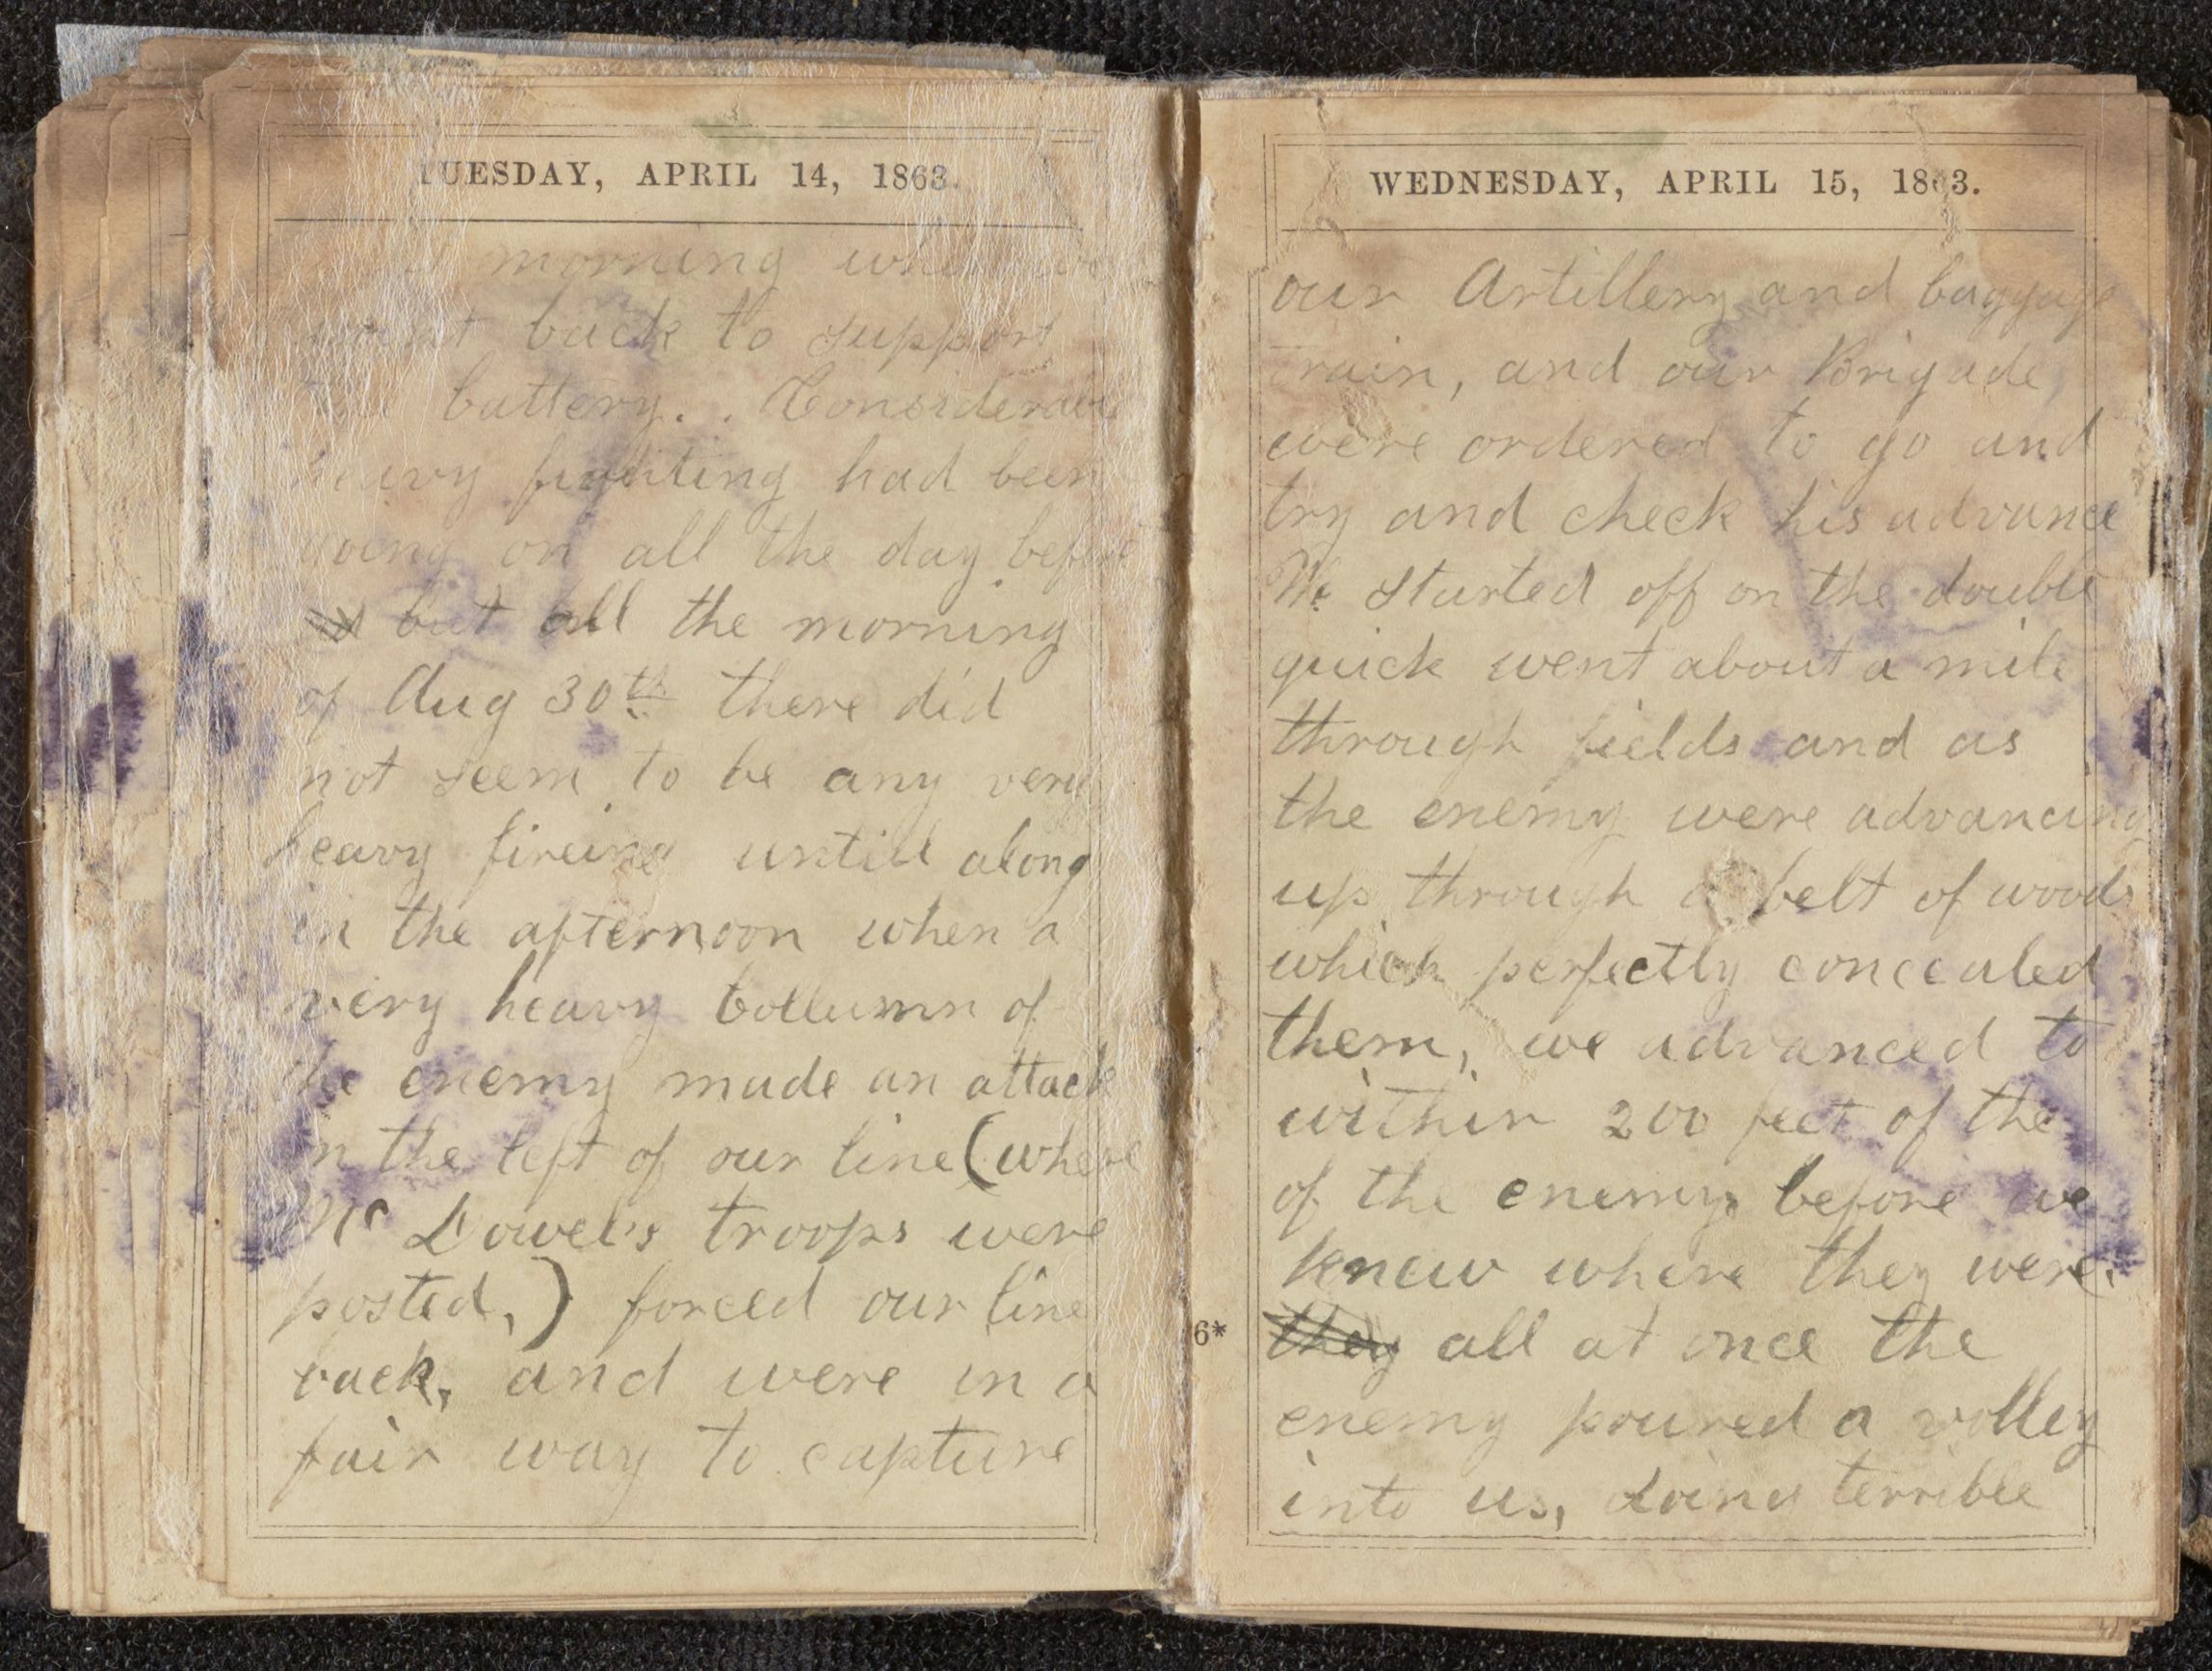 TUESDAY, APRIL 14, 1863.
morning when we
went back to support
battery. . Considerable
heavy fighting had been
going on all the day before
but all the morning
of Aug 30th there did
not seem to be any very
heavy fireing untill along
in the afternoon when a
very heavy Collumn of
the enemy made an attack
on the left of our line (where
Mc Dowel's troops were
posted,) forced our line
back, and were in a
fair way to capture
WEDNESDAY, APRIL 15, 1863.
our Artillery and baggage
train, and our Brigade,
were ordered to go and
try and check his advance
We started off on the double
quick went about a mile
through fields and as
the enemy were advancing
up through a belt of woods
which perfectly concealed
them, we advanced to
within 200 feet of the
of the enemy before we
knew where they were.
6* they all at once the
enemy poured a volley
into us, doing terrible